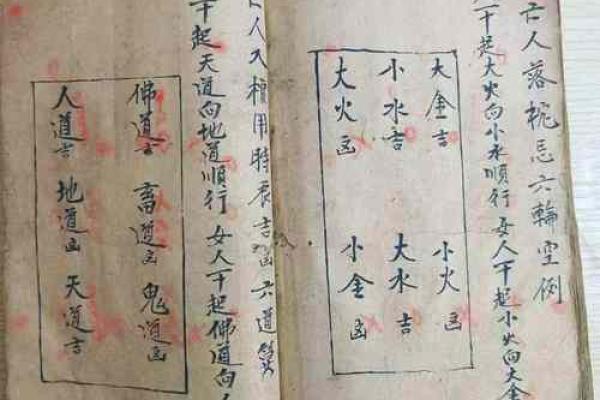 亡人落枕忌六輪空例
一十起大火向小水順行 女人一十起小火向大金
大金吉 小火凶
小水吉 大水吉
大火凶 小金凶
亡人入棺用時辰吉凶六道
十起天道向地道順行 女人一十起佛道向人
佛道吉 畜道凶 鬼道凶
人道吉 地道凶 天道吉